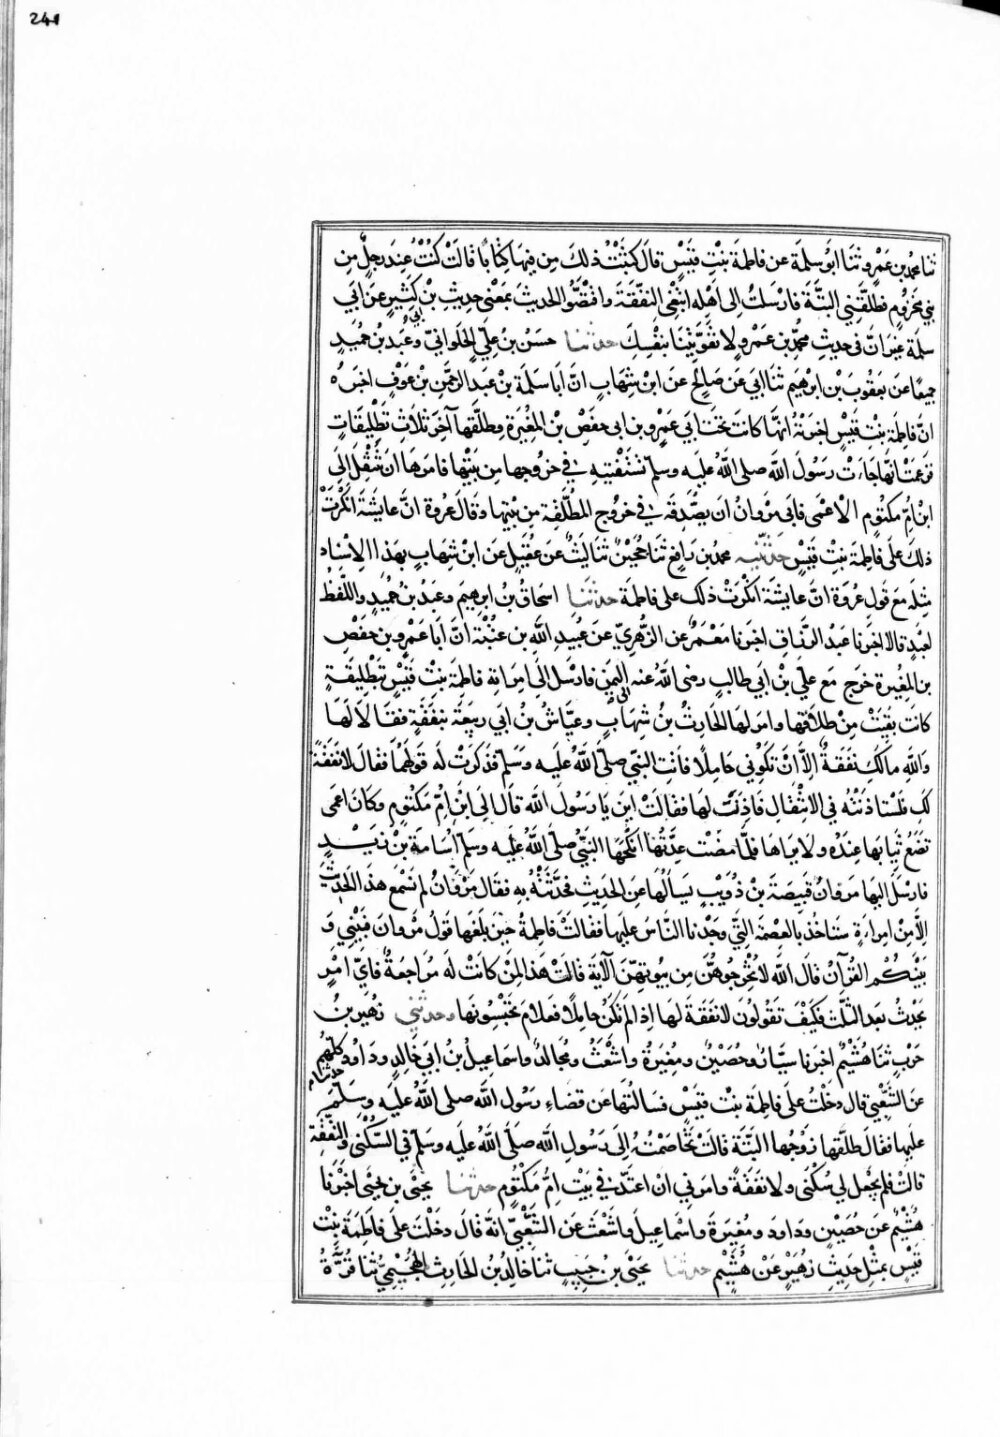 241
ثنا محمد بن عمرو ثنا ابو سلمة عن فاطمة بنت قيس قال كتبت ذلك من فيها كتابا قالت كنت عند رجل من
بني مخزوم فطلقني البتة فارسلت الى اهله ابتغي النفقة واقتصوا الحديث بمعنى حديث بن كثير عن ابي
سلمة غير ان في حديث محمد بن عمرو ولا تفوتينا بنفسك حدثنا حسن بن علي الحلواني وعبد بن حميد
جميعا عن يعقوب بن ابرهيم ثنا ابي عن صالح عن ابن شهاب ان ابا سلمة بن عبد الرحمن بن عوف اخبره
ان فاطمة بنت قيس اخبرته انها كانت تحت ابي عمرو بن ابي حفص بن المغيرة وطلقها آخر ثلاث تطليقات
فزعمت انها جاءت رسول الله صلى الله عليه وسلم تستفتيه في خروجها من بيتها فامرها ان تنتقل الى
ابن ام مكتوم الاعمى فابى مروان ان يصدقه في خروج المطلقة من بيتها وقال عروة ان عايشة انكرت
ذلك على فاطمة بنت قيس حدثنيه محمد بن رافع ثنا حجين ثنا ليث عن عقيل عن ابن شهاب بهذا الاسناد
مثله مع قول عروة ان عايشة انكرت ذلك على فاطمة حدثنا اسحاق بن ابرهيم وعبد بن حميد واللفظ
لعبد قالا اخبرنا عبد الرزاق اخبرنا معمر عن الزهري عن عبيد الله بن عتبة ان ابا عمرو بن حفص
بن المغيرة خرج مع علي بن ابي طالب رضى الله عنه الى اليمن فارسل الى امراته فاطمة بنت قيس بتطليقة
كانت بقيت من طلاقها وامر لها الحارث بن شهاب وعياش بن ابي ربيعة بنفقة فقالا لها
والله مالك نفقة الا ان تكوني حاملا فاتت النبي صلى الله عليه وسلم فذكرت له قولهما فقال لا نفقة
لك فاستاذنته في الانتقال فاذن لها فقالت اين يا رسول الله قال الى ابن ام مكتوم وكان اعمى
تضع ثيابها عنده ولا يراها فلما مضت عدتها انكحها النبي صلى الله عليه وسلم اسامة بن زيد
فارسل اليها مروان قبيصة بن ذويب يسالها عن الحديث فحدثته به فقال مروان لم نسمع هذا الحديث
الا من امراة سناخذ بالعصمة التي وجدنا الناس عليها فقالت فاطمة حين بلغها قول مروان فبيني و
بينكم القرآن قال الله لا تخرجوهن من بيوتهن الآية قالت هذا لمن كانت له مراجعة فاي امر
يحدث بعد الثلث فكيف تقولون لا نفقة لها اذا لم تكن حاملا فعلام تحبسونها وحدثني زهير بن
حرب ثنا هشيم اخبرنا سيار وحصين ومغيرة واشعث ومجالد واسماعيل بن ابي خالد وداود كلهم
عن الشعبي قال دخلت على فاطمة بنت قيس فسالتها عن قضاء رسول الله صلى الله عليه وسلم
عليها فقال طلقها زوجها البتة قالت فخاصمته الى رسول الله صلى الله عليه وسلم في السكنى والنفقة
قالت فلم يجعل لي سكنى ولا نفقة وامرني ان اعتد في بيت ام مكتوم حدثنا يحيى بن يحيى اخبرنا
هشيم عن حصين وداود ومغيرة واسماعيل واشعث عن الشعبي انه قال دخلت على فاطمة بنت
قيس بمثل حديث زهير عن هشيم حدثنا يحيى بن حبيب ثنا خالد بن الحارث الهجيمي ثنا قرة